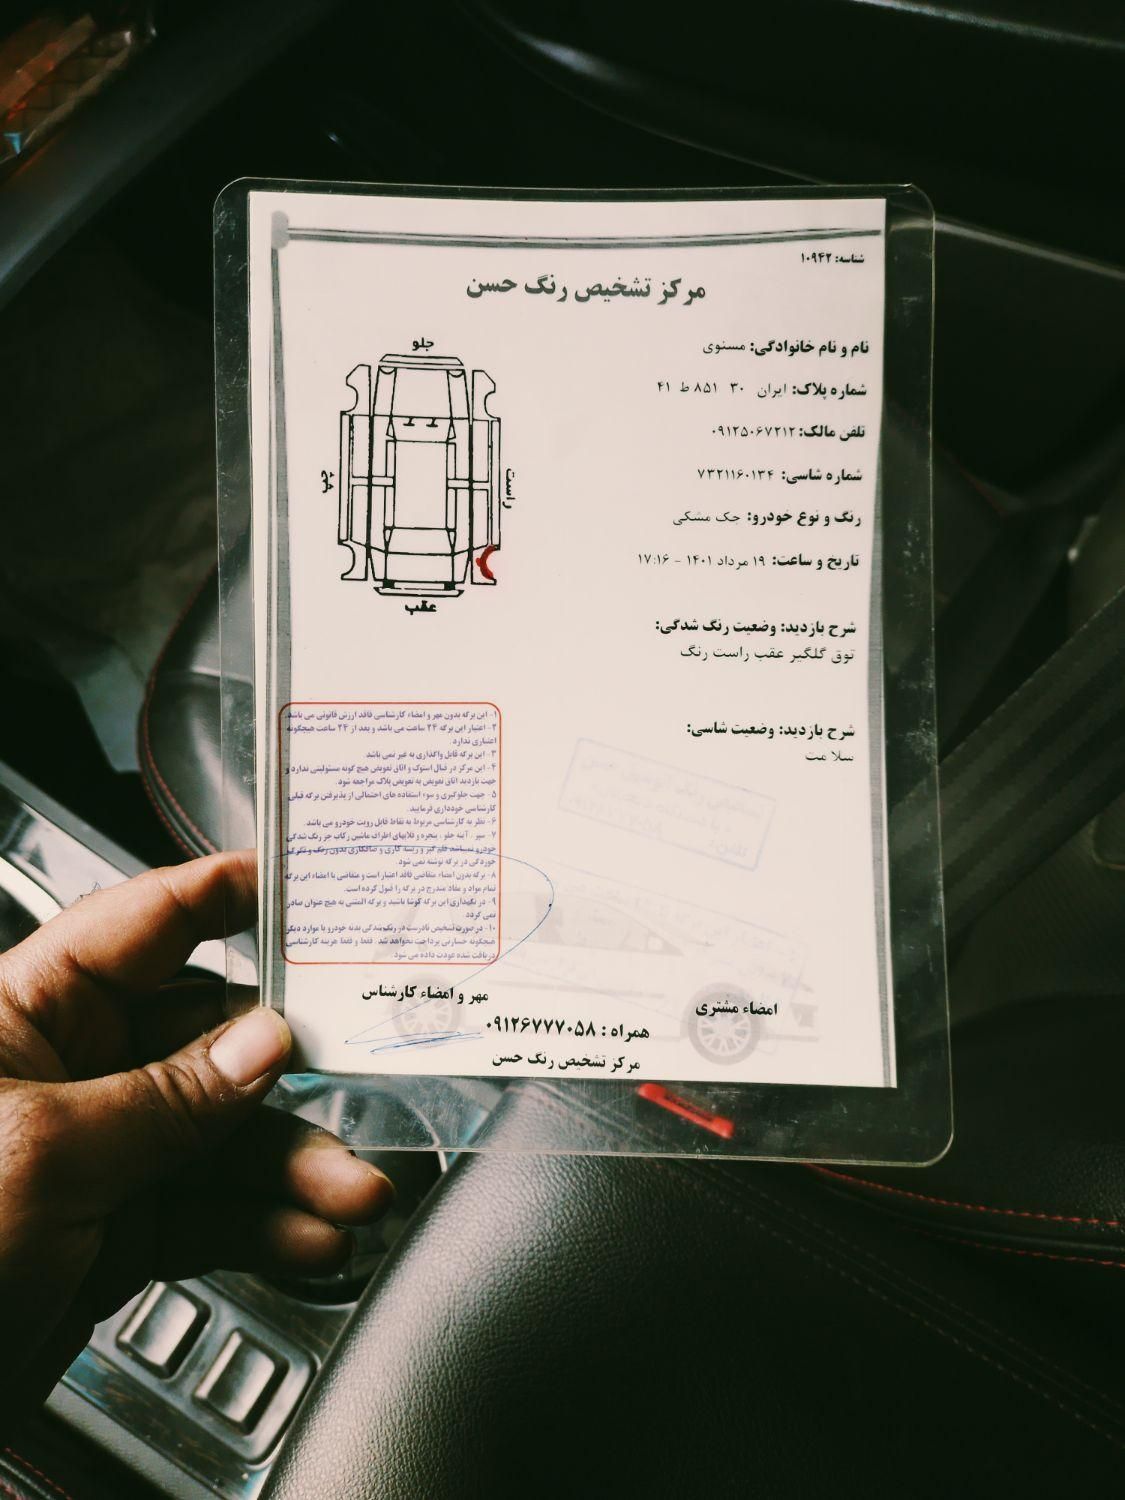 شناسه: ۱۰۹۴۲
مرکز تشخیص رنگ حسن
جلو
چپ
راست
عقب
نام و نام خانوادگی: مسنوی
شماره پلاک: ایران ۳۰ ۸۵۱ ط ۴۱
تلفن مالک: ۰۹۱۲۵۰۶۷۲۱۲
شماره شاسی: ۷۳۲۱۱۶۰۱۳۴
رنگ و نوع خودرو: جک مشکی
تاریخ و ساعت: ۱۹ مرداد ۱۴۰۱ - ۱۷:۱۶
شرح بازدید: وضعیت رنگ شدگی:
توق گلگیر عقب راست رنگ
شرح بازدید: وضعیت شاسی:
سلا مت
۱- این برگه بدون مهر و امضاء کارشناسی فاقد ارزش قانونی می باشد.
۲- اعتبار این برگه ۲۴ ساعت می باشد و بعد از ۲۴ ساعت هیچگونه
اعتباری ندارد.
۳- این برگه قابل واگذاری به غیر نمی باشد
۴- این مرکز در قبال استوک و اتاق تعویض هیچ گونه مسئولیتی ندارد و
جهت بازدید اتاق تعویض به تعویض پلاک مراجعه شود.
۵- جهت جلوگیری و سوء استفاده های احتمالی از پذیرفتن برگه قبلی
کارشناسی خودداری فرمایید.
۶- نظر به کارشناسی مربوط به نقاط قابل رویت خودرو می باشد.
۷- سپر . آینه جلو . پنجره و قلابهای اطراف ماشین رکاب جز رنگ شدگی
خودرو نمیباشد قلم گیر و ریسه کاری و صافکاری بدون رنگ و تگرگ
خوردگی در برگه نوشته نمی شود.
۸- برگه بدون امضاء متقاضی فاقد اعتبار است و متقاضی با امضاء این برگه
تمام مواد و مفاد مندرج در برگه را قبول کرده است.
۹- در نگهداری این برگه کوشا باشید و برگه المثنی به هیچ عنوان صادر
نمی گردد.
۱۰- در صورت تشخیص نادرست در رنگ شدگی بدنه خودرو یا موارد دیگر
هیچگونه خسارتی پرداخت نخواهد شد. فقط و فقط هزینه کارشناسی
دریافت شده عودت داده می شود.
مهر و امضاء کارشناس
امضاء مشتری
همراه : ۰۹۱۲۶۷۷۷۰۵۸
مرکز تشخیص رنگ حسن